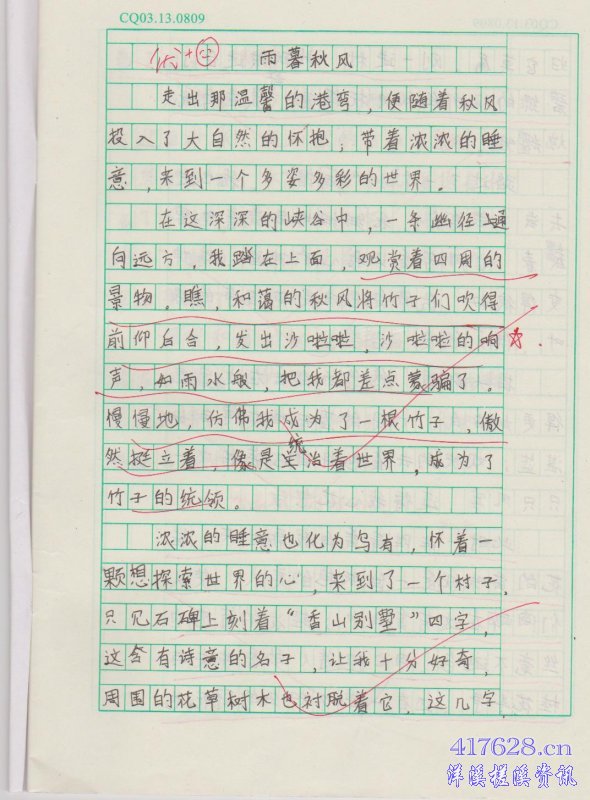 CQ03.13.0809
优+
雨暮秋风
走出那温馨的港弯，便随着秋风
投入了大自然的怀抱；带着浓浓的睡
意，来到一个多姿多彩的世界。
在这深深的峡谷中，一条幽径通
向远方，我踏在上面，观赏着四周的
景物。瞧，和蔼的秋风将竹子们吹得
前仰后合，发出沙啦啦，沙啦啦的响
声，如雨水般，把我都差点蒙骗了。
慢慢地，仿佛我成为了一根竹子，傲
然挺立着，像是统治着世界，成为了
竹子的统领。
浓浓的睡意也化为乌有，怀着一
颗想探索世界的心，来到了一个村子，
只见石碑上刻着“香山别墅”四字，
这含有诗意的名子，让我十分好奇，
周围的花草树木也衬脱着它，这几字
417628.cn
洋溪槎溪资讯